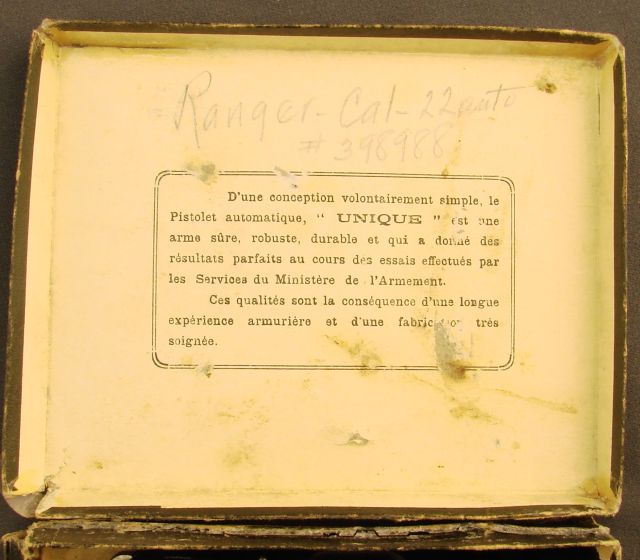 Ranger - Cal - 22 auto
# 398988
D'une conception volontairement simple, le
Pistolet automatique, " UNIQUE " est une
arme sûre, robuste, durable et qui a donné des
résultats parfaits au cours des essais effectués par
les Services du Ministère de l'Armement.
Ces qualités sont la conséquence d'une longue
expérience armurière et d'une fabrication très
soignée.